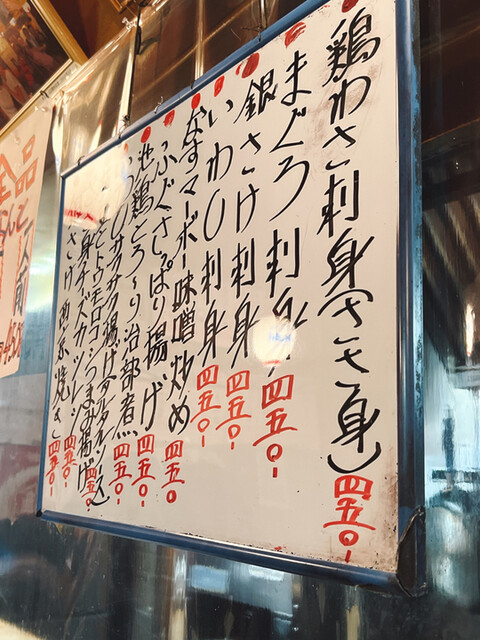 鶏わさ刺身(ささ身) 四五〇-
まぐろ刺身 四五〇-
銀さけ刺身 四五〇-
いわし刺身 四五〇-
なすマーボー味噌炒め 四五〇
ふぐさっぱり揚げ 四五〇-
池鶏ころ〜り治部煮 四五〇-
サクサク揚げタルタルソース
トウモロコシつまみ揚げ 四五〇-
身チーズカツレツ 四五〇-
さけ西京焼き 四五〇-
品
二人前